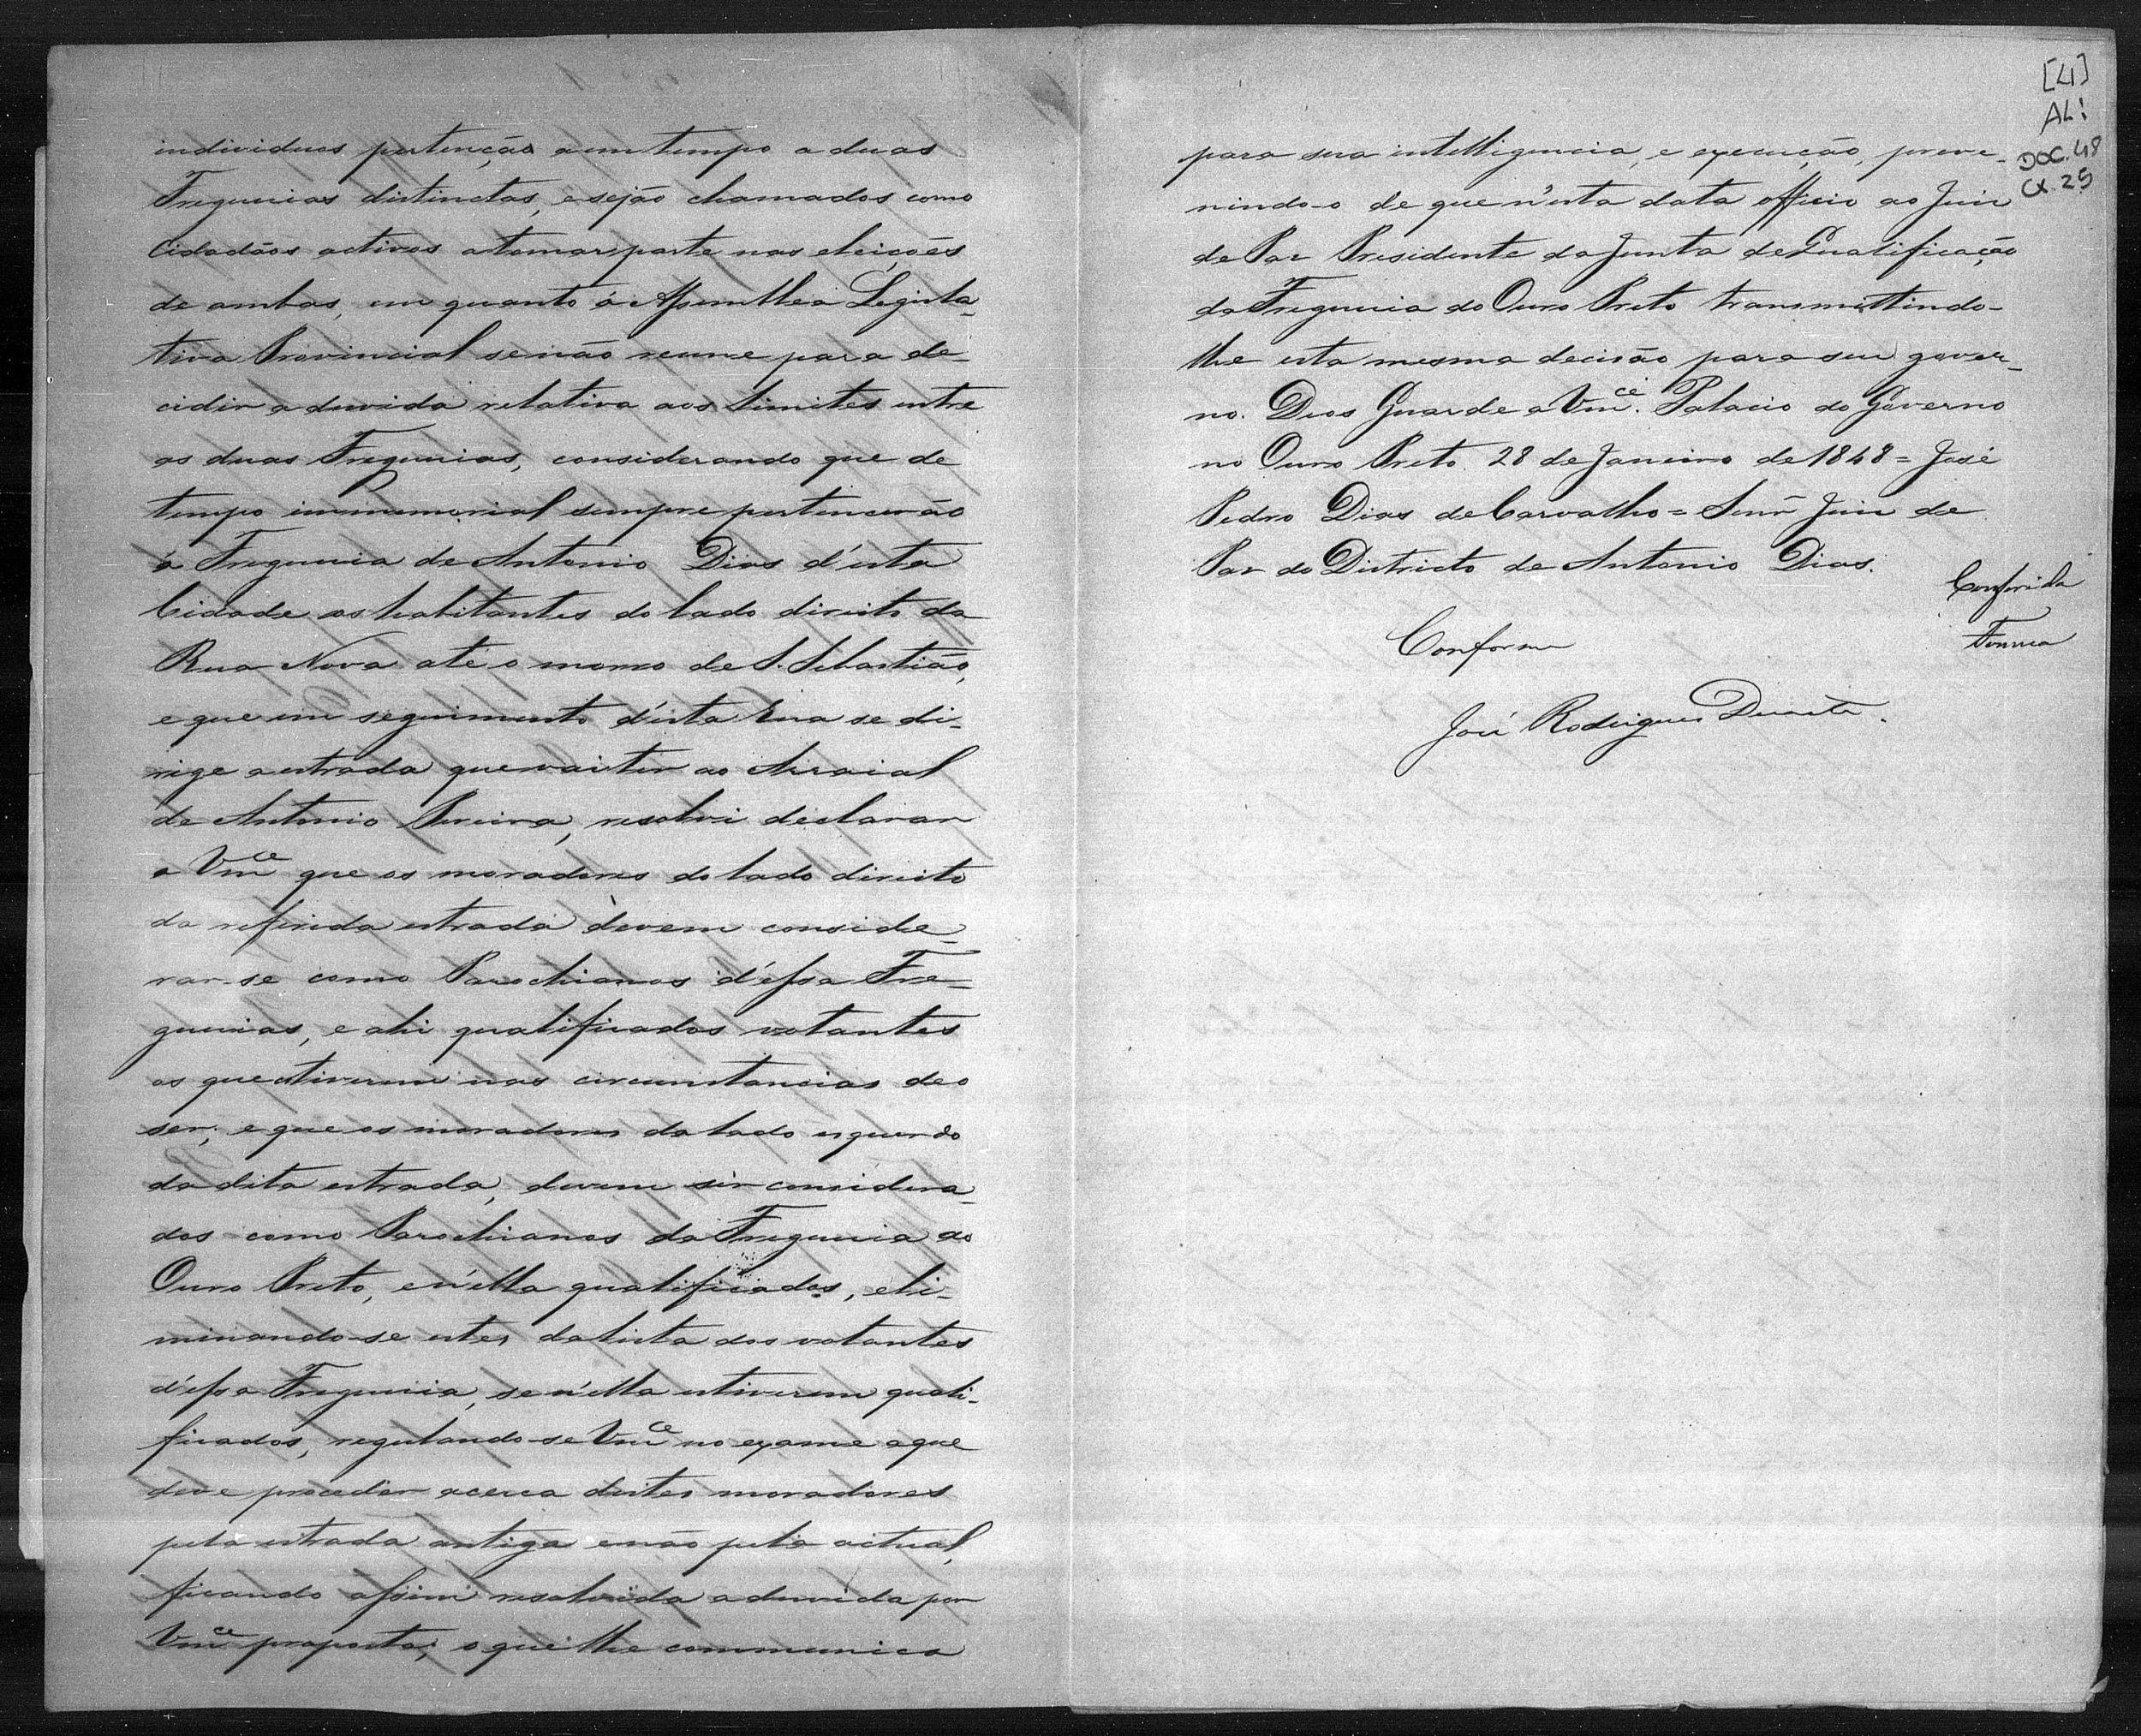 individuos pertenção a um tempo a duas
Freguezias distinctas, e sejão chamados como
Cidadãos activos a tomar parte nas eleições
de ambas, em quanto á Assemblea Legisla-
tiva Provincial se não reune para de-
cidir a duvida relativa aos limites entre
as duas Freguezias, considerando que de
tempo immemorial sempre pertencerão
á Freguezia de Antonio Dias d'esta
Cidade os habitantes do lado direito da
Rua Nova até o morro de S. Sebastião,
e que em seguimento d'esta rua se di-
rige a estrada que vai ter ao Arraial
de Antonio Pereira, resolvi declarar
a Vmce que os moradores do lado direito
da referida estrada devem conside-
rar-se como Parochianos d'essa Fre-
guezias, e ahi qualificados votantes
os que estiverem nas circumstancias de o
ser; e que os moradores do lado esquerdo
da dita estrada, devem ser considera-
dos como Parochianos da Freguezia do
Ouro Preto, e n'ella qualificados, eli-
minando-se estes da lista dos votantes
d'essa Freguezia, se n'ella estiverem quali-
ficados, regulando-se Vmce no exame a que
deve proceder acerca destes moradores
pela estrada antiga e não pela actual,
ficando assim resolvida a duvida por
Vmce proposta; o que lhe communico
[4]
AL!
DOC. 48
CX. 25
para sua intelligencia, e execução, preve-
nindo-o de que n'esta data officio ao Juiz
de Paz Presidente da Junta de Qualificação
da Freguezia do Ouro Preto transmittindo-
lhe esta mesma decisão para seu gover-
no. Deos Guarde a Vmcê. Palacio do Governo
no Ouro Preto 28 de Janeiro de 1848 = José
Pedro Dias de Carvalho = Senr Juiz de
Paz do Districto de Antonio Dias.
Conferida
Fonseca
Conforme
José Rodrigues Duarte.